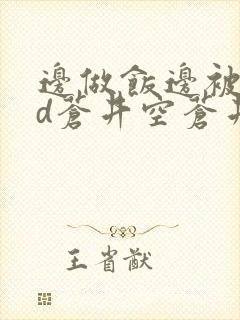 邊做飯邊被
d蒼井空蒼井
王省猷